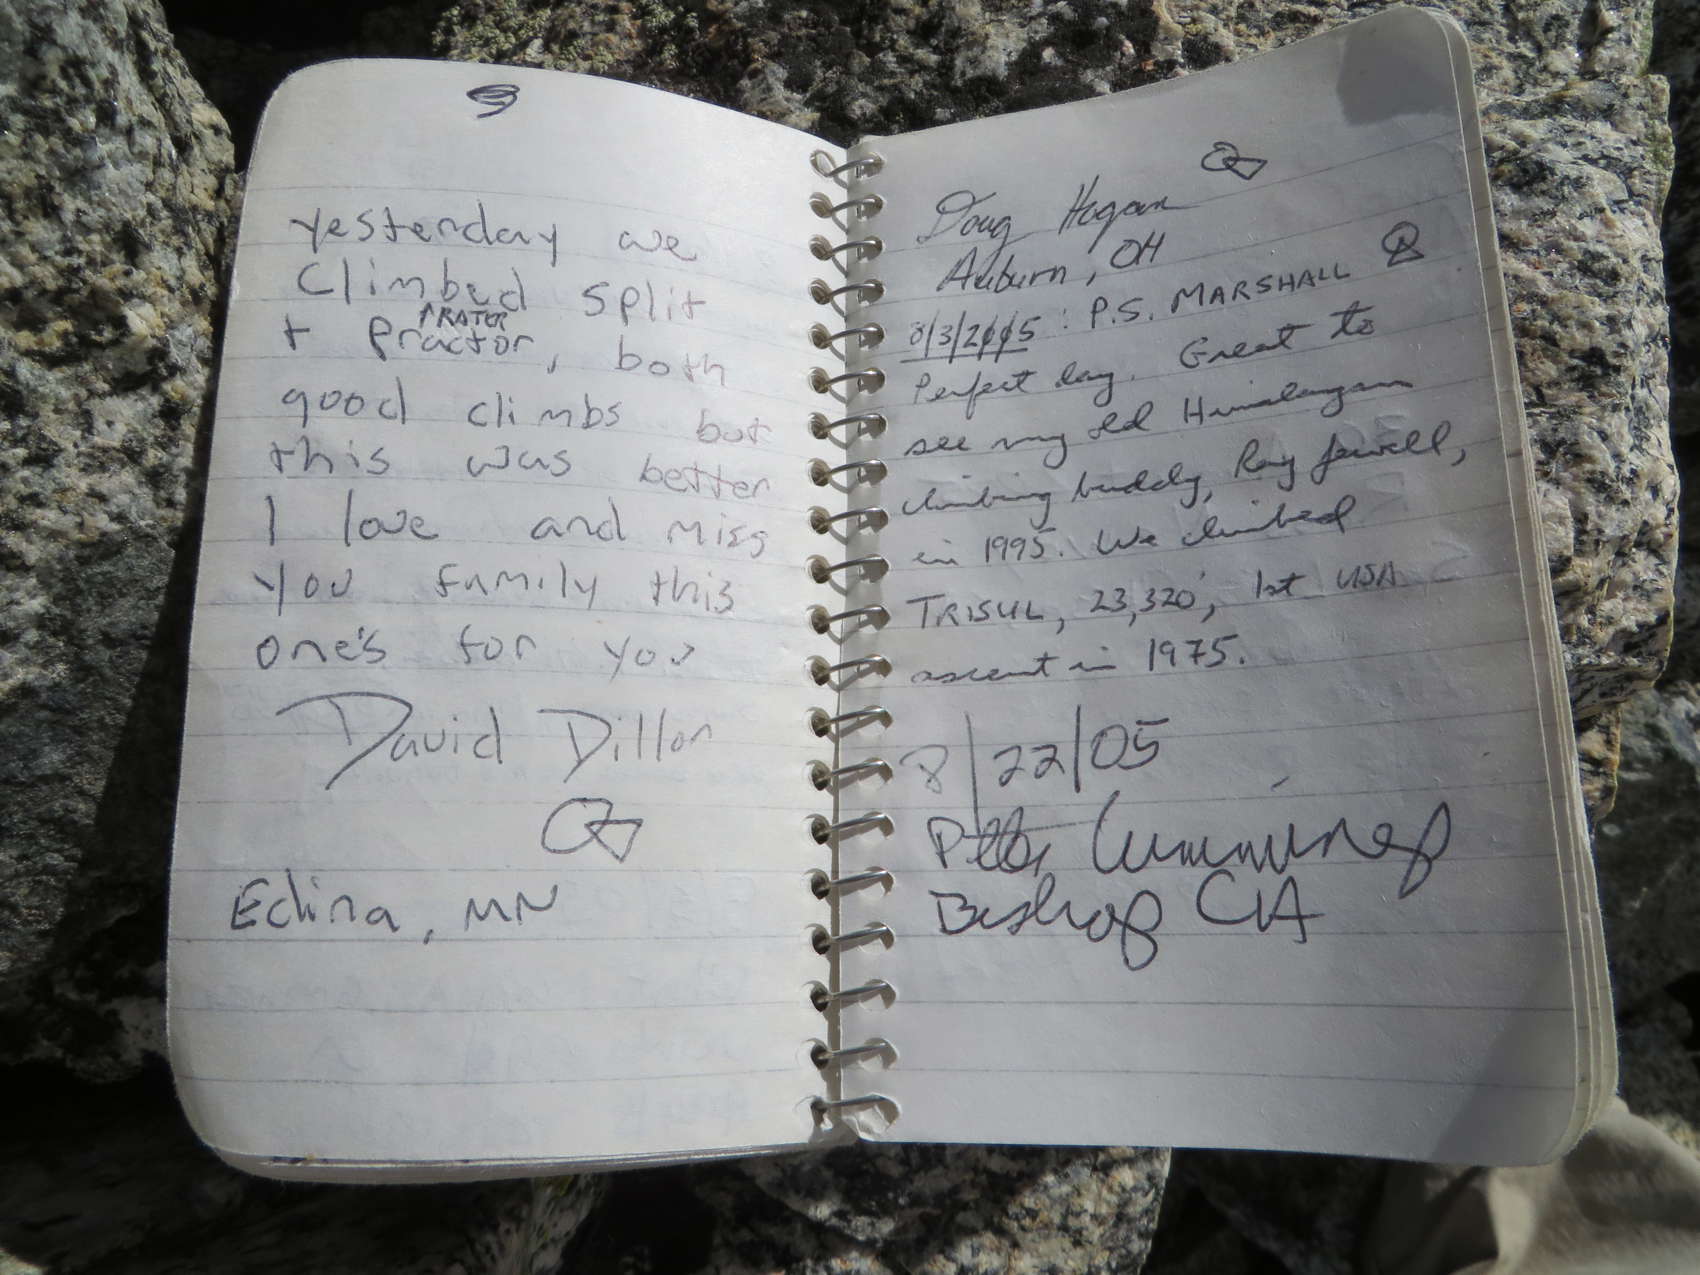 yesterday we
Climbed split
PRATER
+ practor, both
good climbs but
this was better
I love and miss
you family this
one's for you
David Dillon
Edina, MN
Doug Hogan
Auburn, OH
8/3/2005 : P.S. MARSHALL
Perfect day. Great to
see my old Himalayan
climbing buddy, Ray Jewell,
in 1995. We climbed
TRISUL, 23,320', 1st USA
ascent in 1975.
8/22/05
Peter Cummings
Bishop CA